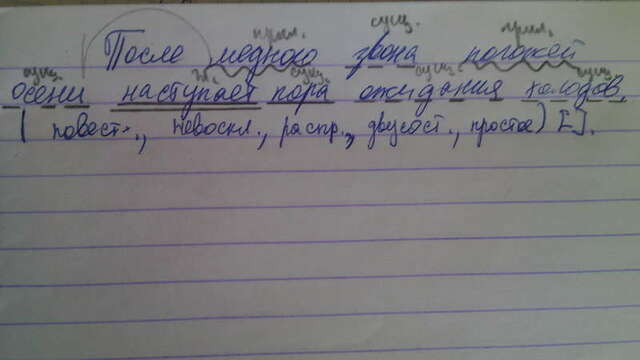 прил. сущ. прил.
После медного звона погожей
сущ. гл. сущ. сущ. сущ.
осени наступает пора ожидания холодов.
( повест., невоскл., распр., двусост., простое) [ ].